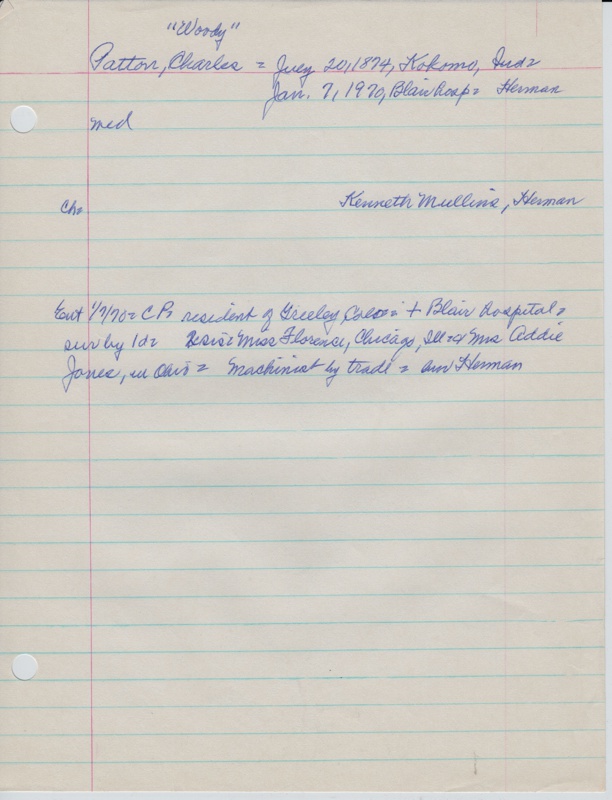 "Woody"
Patton, Charles = July 20, 1874, Kokomo, Ind=
Jan. 7, 1970, Blair hosp= Herman
med
ch=
Kenneth Mullins, Herman
1/7/70= CP= resident of Greeley, Colo= + Blair hospital=
sur by 1d= 2sis= Miss Florense, Chicago, Ill= & Mrs Addie
Jones, in Ohio = Machinist by trade = Herman